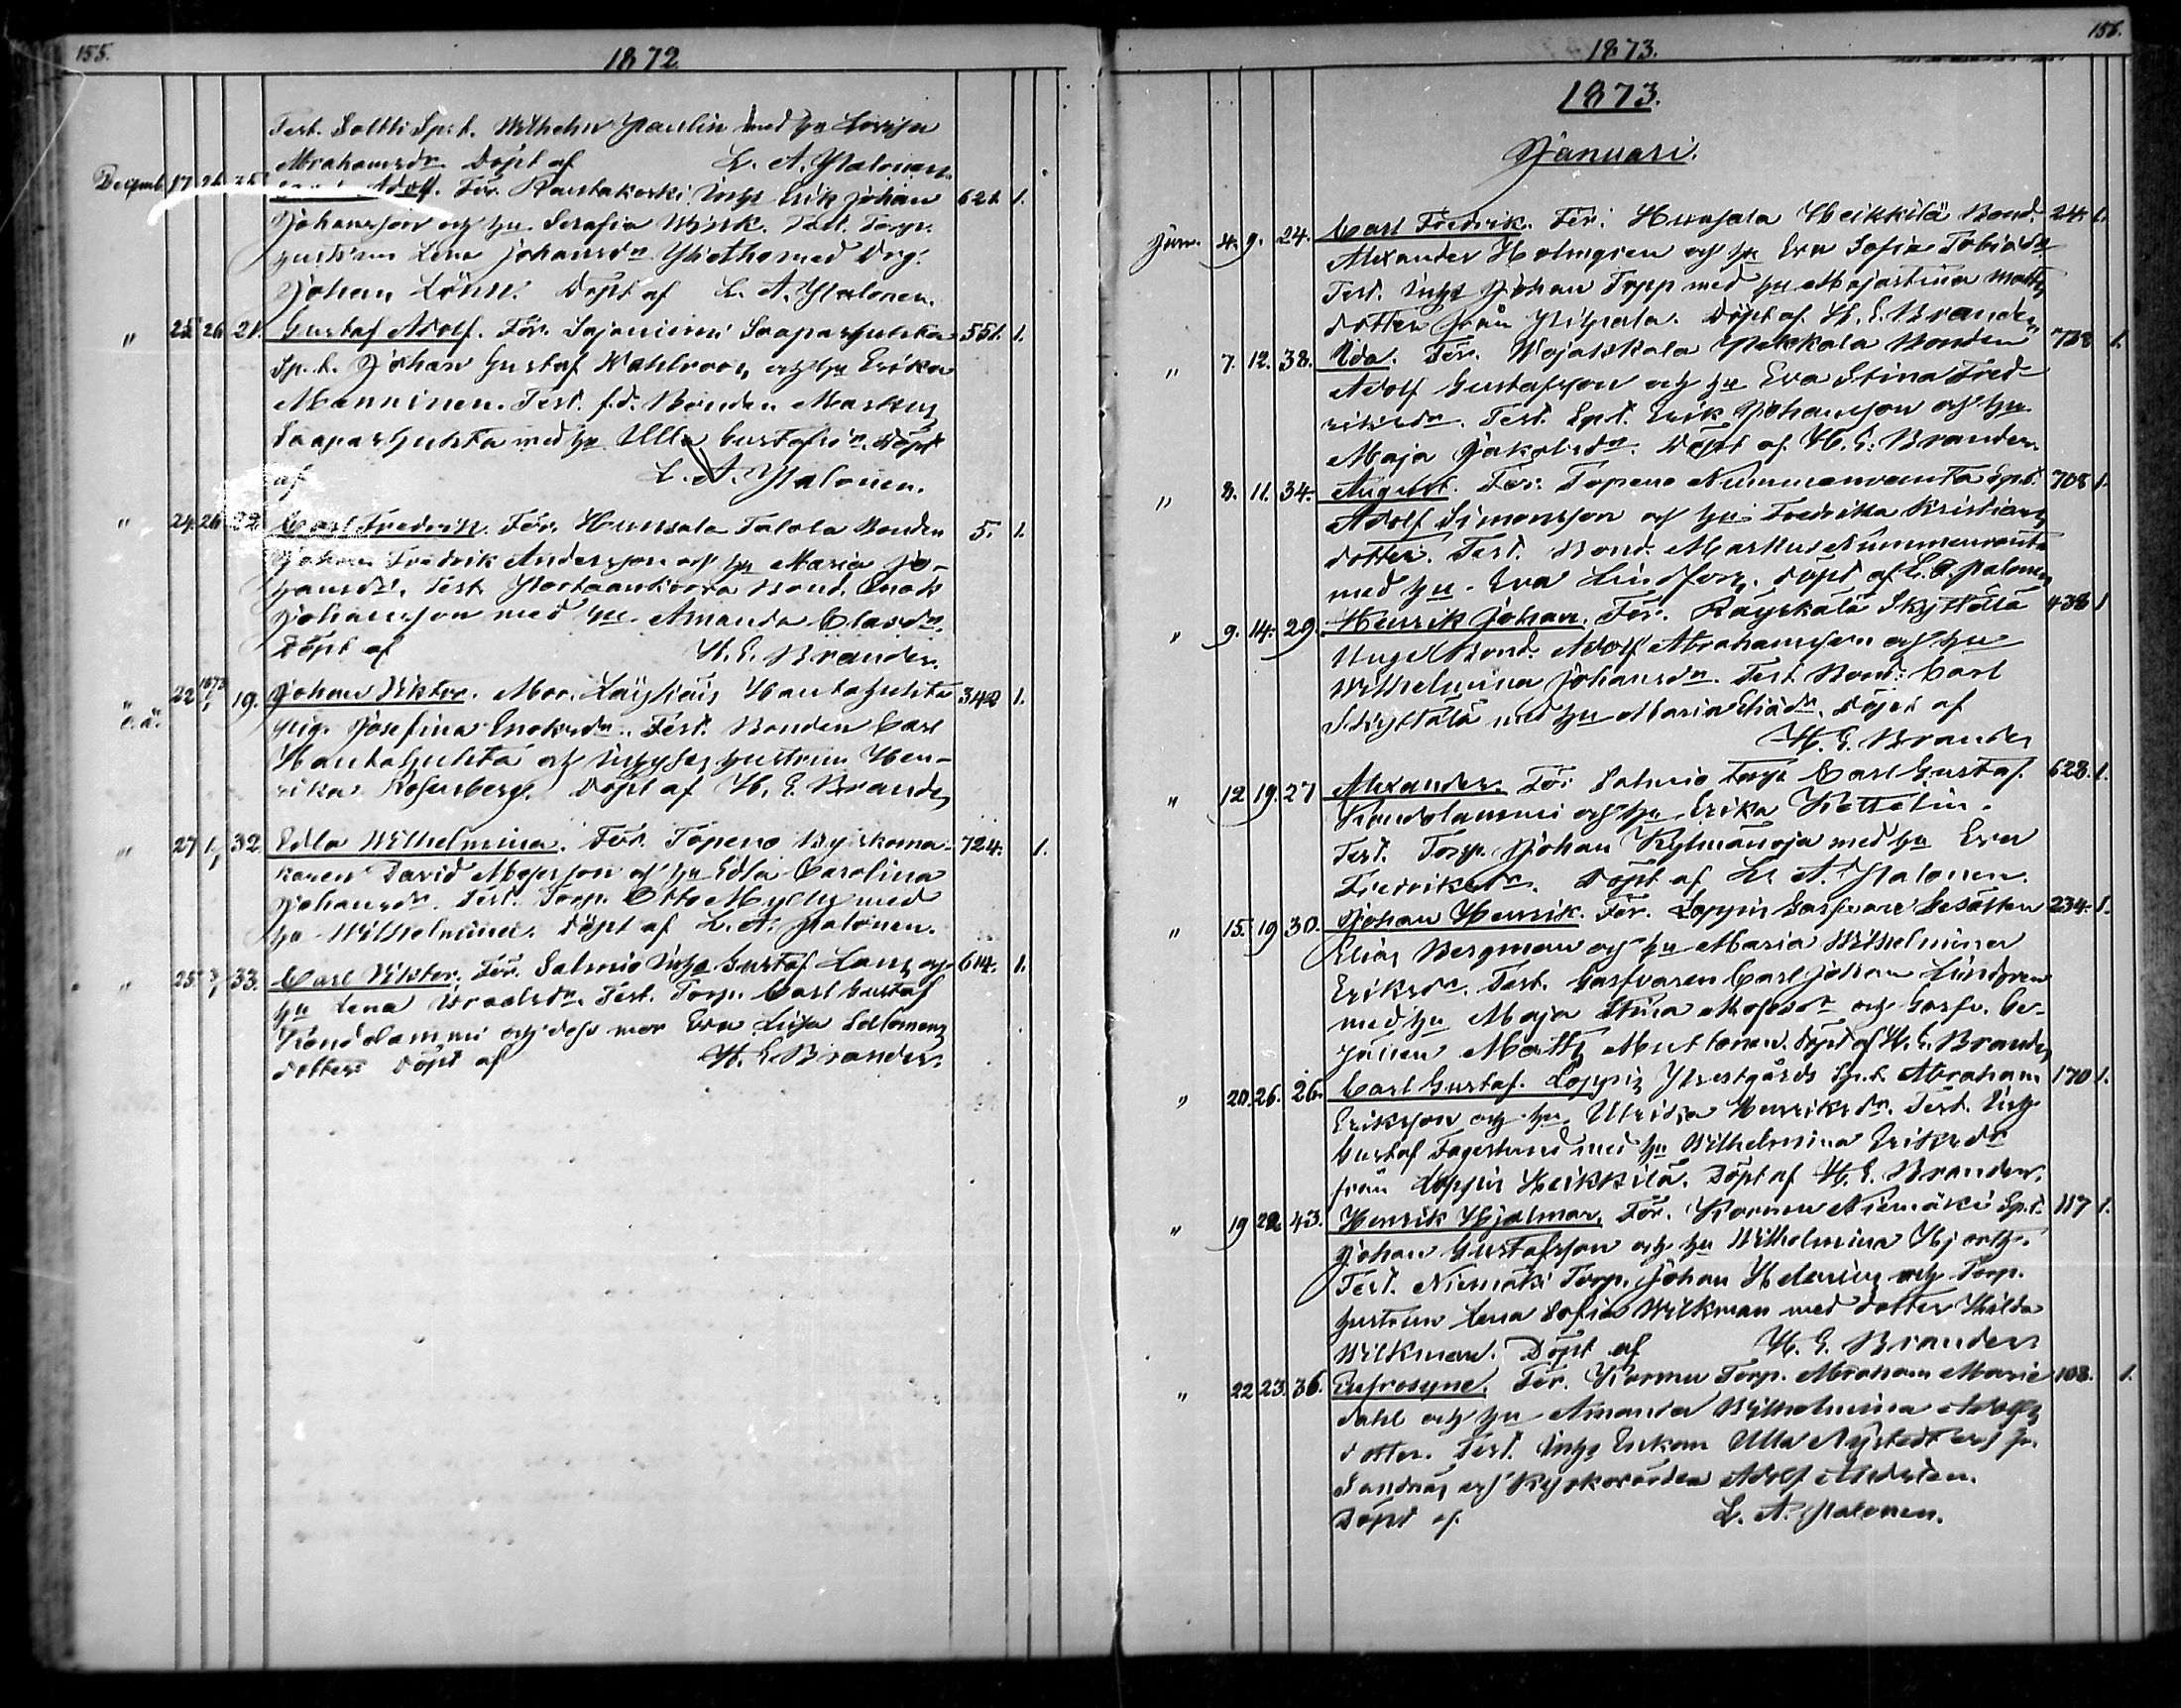 155.
1872
Test. Soltti Sp:t. Wilhelm Paulin med hu Lovisa
Abrahamsdr. Döpt af L. A. Malonen.
Decemb. 17 Adolf. För. Raustakoski Inhs Erik Johan 621. 1.
Johansson och hu Serafia Test. Torp.
hustrun Lena Johansdr med Drg.
Johan Lönn. Döpt af L. A. Malonen.
" 25 26 21. Gustaf Adolf. För. Sajaniemi Saaparhuhta 551. 1.
Sp.t. Johan Gustaf Wahlroos och hu Erika
Manninen. Test. f.d. Bonden Markus
Saaparhuhta med hu Ulla Gustafsdr. Döpt
af L. A. Malonen.
" 24. 26 22 Carl Fredrik. För. Hunsala Talola Bonden 5. 1.
Johan Fredrik Andersson och hu Maria Jo-
hansdr. Test. Bond. Enok
Johansson med hu Amanda Clasdr.
Döpt af H. E. Brander.
" o.ä. 22 1873 19. Johan Viktor. Mor. Läyliäis Hautahuhta 342 1.
pig. Josefina Enoksdr. Test. Bonden Carl
Hautahuhta och hustrun Hen-
rika Rosenberg. Döpt af H. E. Brander
" 27 1/1 32 Edla Wilhelmina. För. Topeno Byskoma- 724. 1.
karen David Mosesson och hu Edla Carolina
Johansdr. Test. Torp. Otto med
hu Wilhelmina. Döpt af L. A. Malonen.
" 25. 33. Carl Viktor. För. Salmis Inhs Gustaf Lang och 614. 1.
hu Lena Test. Torp. Carl Gustaf
Kandolammi och dess mor Eva Lisa Salomons
dotter Döpt af H. E. Brander.
156.
1873.
1873.
Januari.
Janu. 4. 9. 24. Carl Fredrik. För. Hunsala Heikkilä Bond. 24. 1.
Alexander Holmgren och hu Eva Sofia Tobiasdr
Test. Inhs Johan Topp med hu Majastina Matts
dotter från Döpt af H. E. Brander
" 7. 12. 38. Ida. För. Wojakkala Pekkala Bonden 738 1.
Adolf Gustafsson och hu Eva Stina Fred-
riksdr. Test. Spt. Erik Johansson och hu
Maja Jakobsdr. Döpt af H. E. Brander.
" 8. 11. 34. August. För. Topeno Nummenranta Spt. 708 1.
Adolf Simonsson och hu Fredrika Kristians
dotter. Test. Bond. Markus Nummenranta
med hu Eva Lindfors. Döpt af L. A. Malonen
" 9. 14. 29. Henrik Johan. För. Räyskälä Skyttälä 438 1
Bond. Adolf Abrahamsson och hu
Wilhelmina Johansdr. Test. Bond. Carl
Skyttälä med hu Maria Döpt af
H. E. Brander
" 12 19. 27 Alexander. För. Salmis Torp Carl Gustaf 628. 1.
Kandolammi och hu Erika Kettelin.
Test. Torp. Johan Kylmänoja med hu Eva
Fredriksdr. Döpt af L. A. Malonen.
" 15. 19 30. Johan Henrik. För. Loppis Gesällen 234. 1.
Elias Bergman och hu Maria Wilhelmina
Eriksdr. Test. Garfvaren Carl Johan Lindgren
med hu Maja Stina Mosesdr och Garfv. Ge-
sällen Matts Döpt af H. E. Brander
" 20. 26. 26. Carl Gustaf. Loppis Prestgårds Sp.t. Abraham 170 1.
Eriksson och hu Ulrika Henriksdr. Test. Inhs
Gustaf Fagerlund med hu Wilhelmina Eriksdr
från Loppis Heikkilä. Döpt af H. E. Brander.
" 19 22 43. Henrik Hjalmar. För. Kormu Niemäki Sp.t. 117 1.
Johan Gustafsson och hu Wilhelmina Hjorth.
Test. Niemäki Torp. Johan Helenius och Torp.
hustrun Lena Sofia Wilkman med dotter Hilda
Wilkman. Döpt af H. E. Brander
" 22 23. 36. Eufrosyne. För. Kormu Torp. Abraham Marie 108. 1.
dahl och hu Amanda Wilhelmina Adolfs
dotter. Test. Inhs Enkan Ulla Nystedt
och Kyrkovärden Adolf
Döpt af L. A. Malonen.